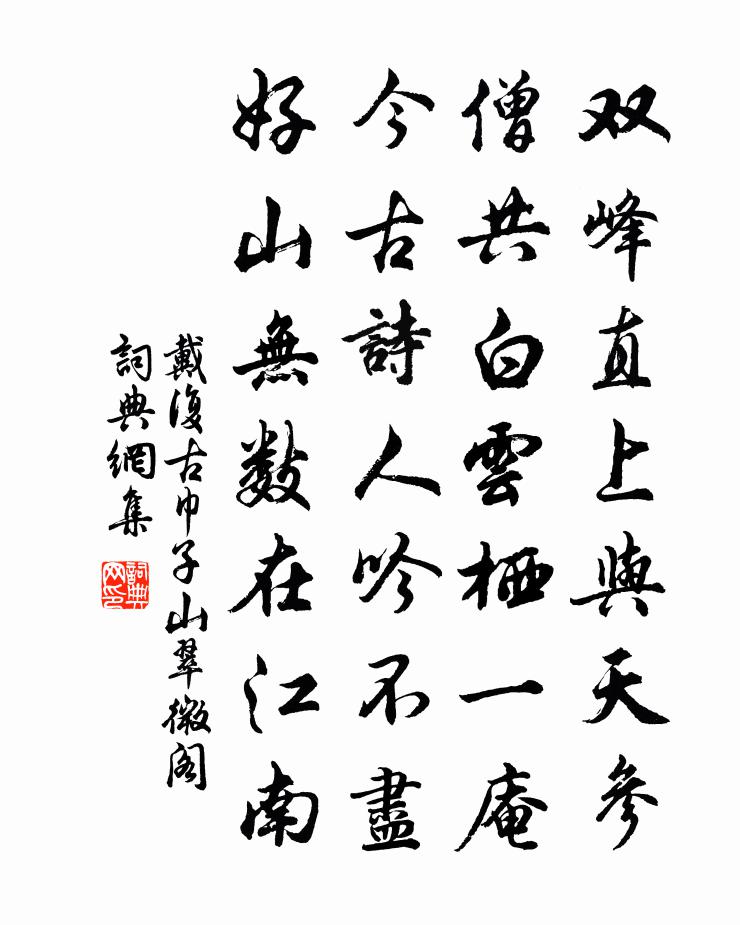 双峰直上與天參
僧共白雲栖一庵
今古詩人吟不盡
好山無数在江南
戴復古巾子山翠微阁
詞典網集
詞典网印